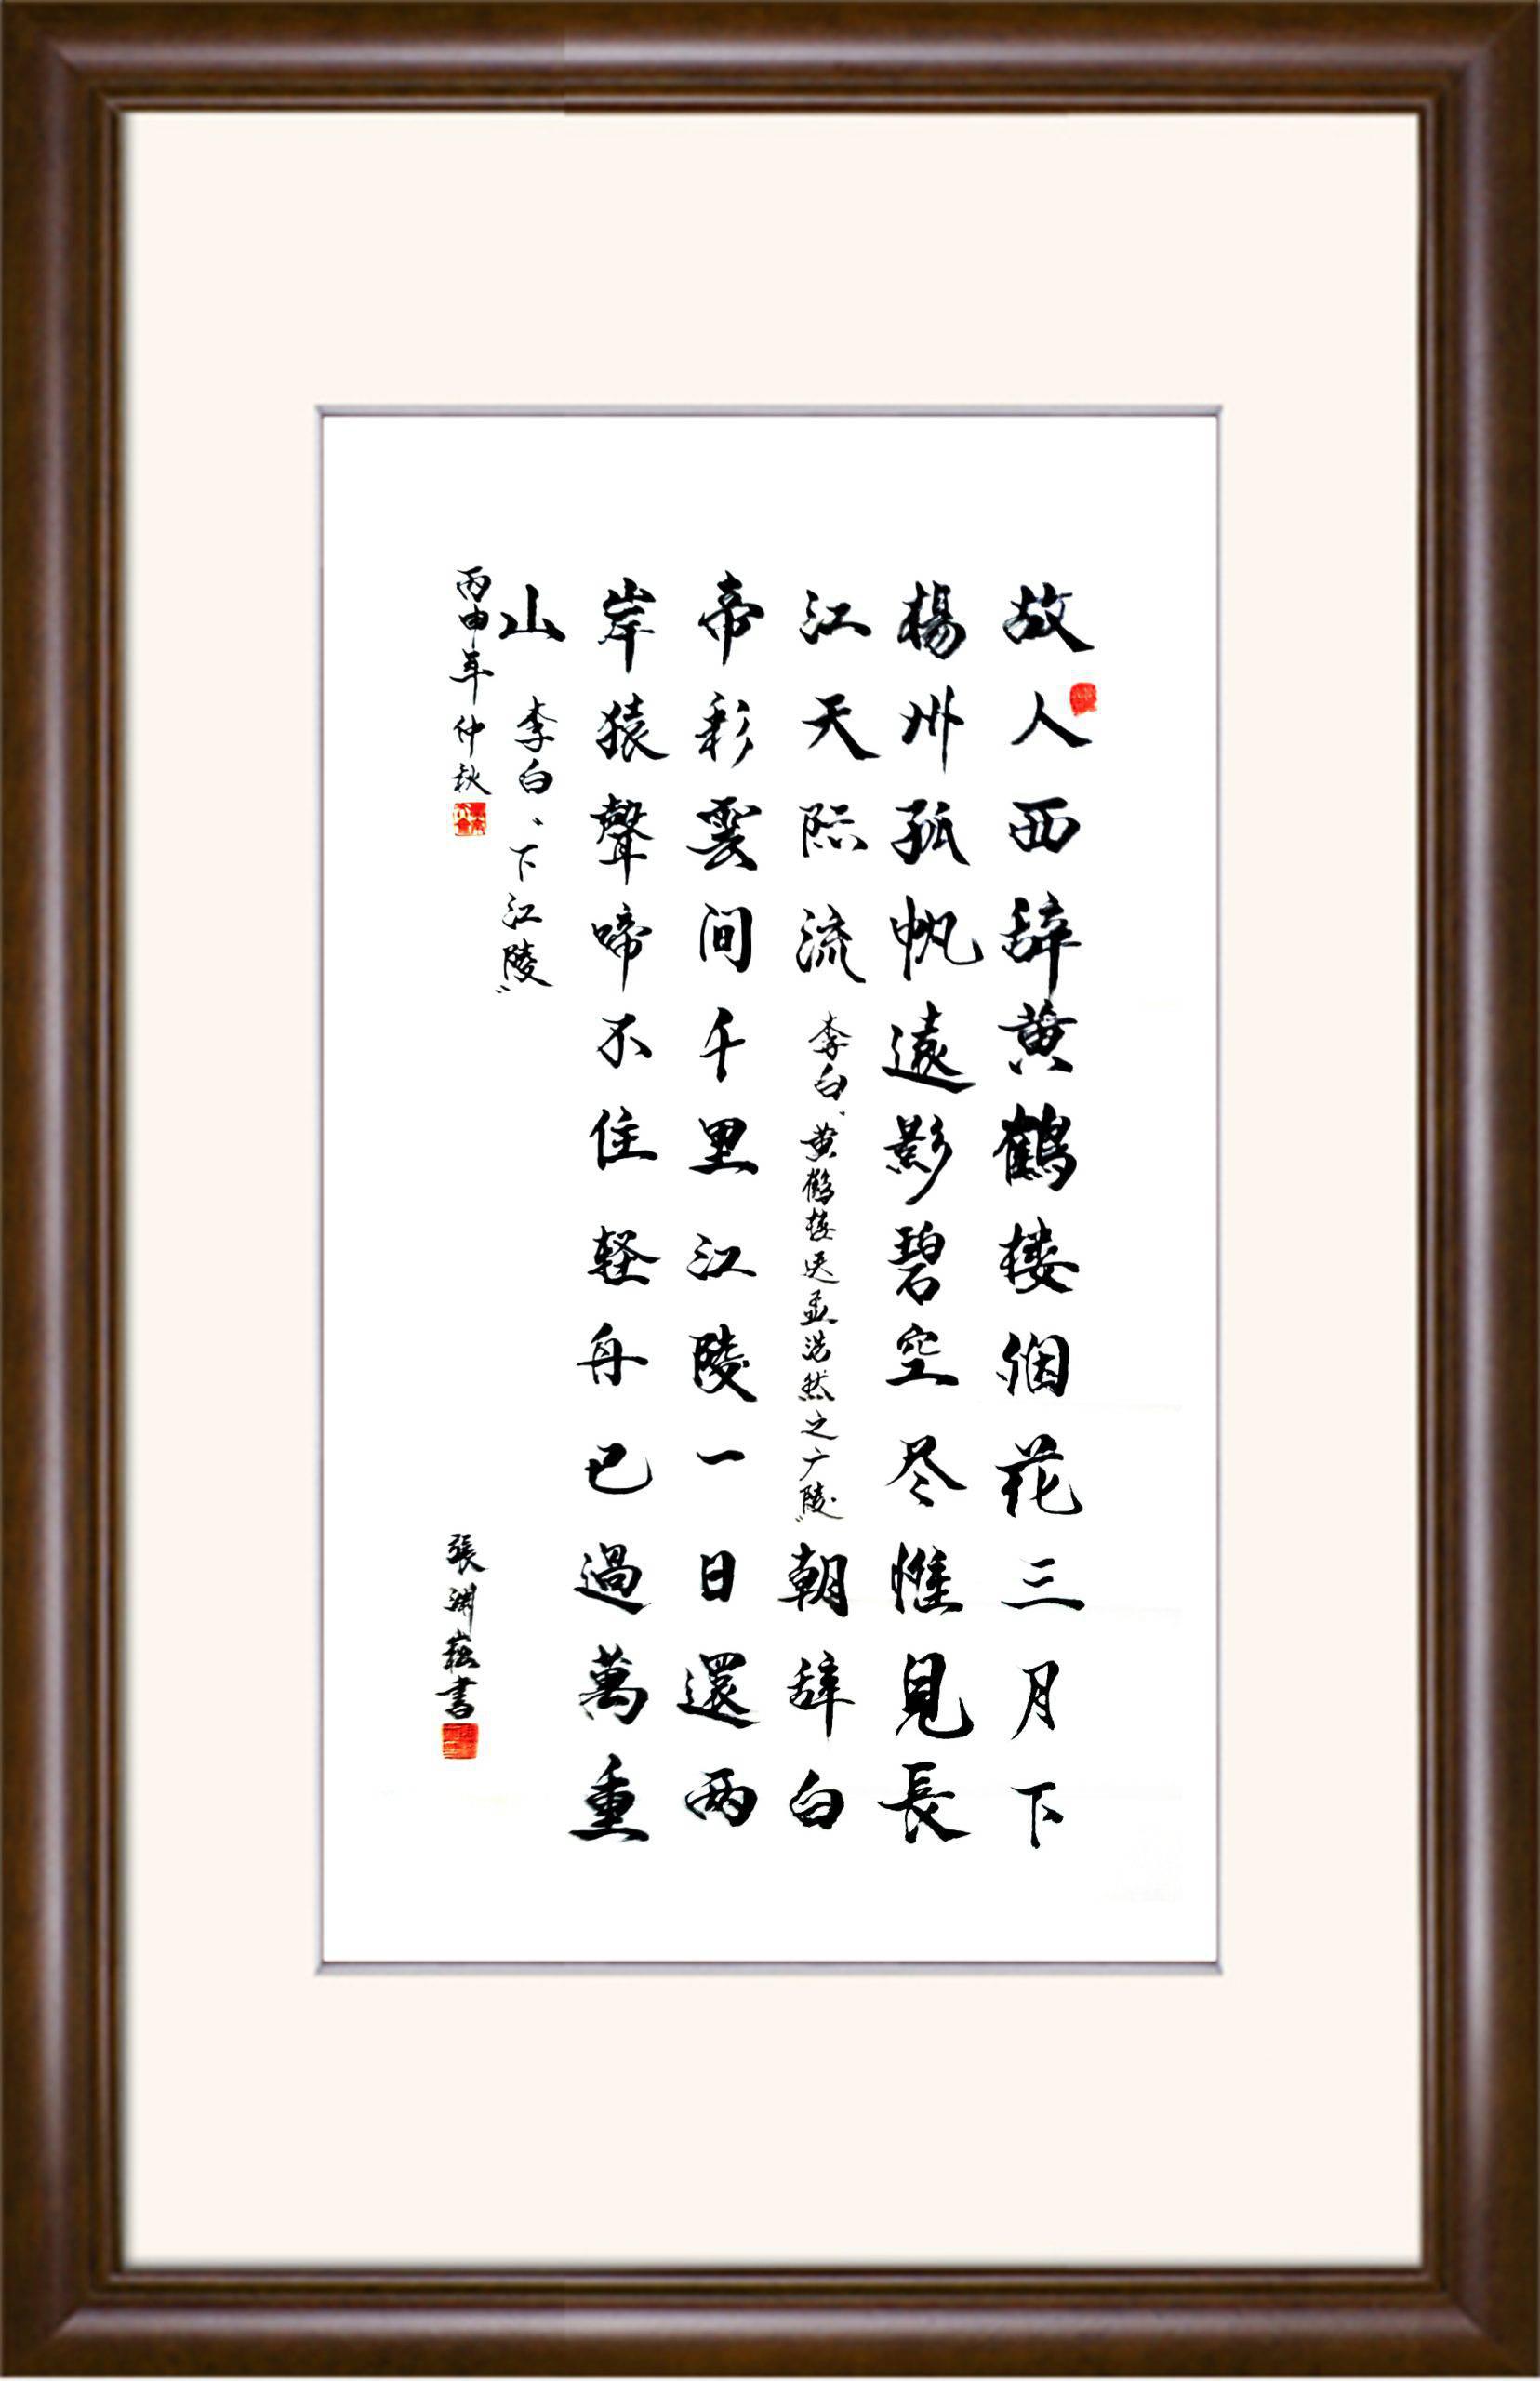 故人西辞黄鶴楼烟花三月下
楊州孤帆遠影碧空尽惟見長
江天际流 李白“黄鹤楼送孟浩然之广陵” 朝辞白
帝彩雲间千里江陵一日還两
岸猿聲啼不住軽舟已過萬重
山 李白“下江陵”
丙申年仲秋
張渊崧書